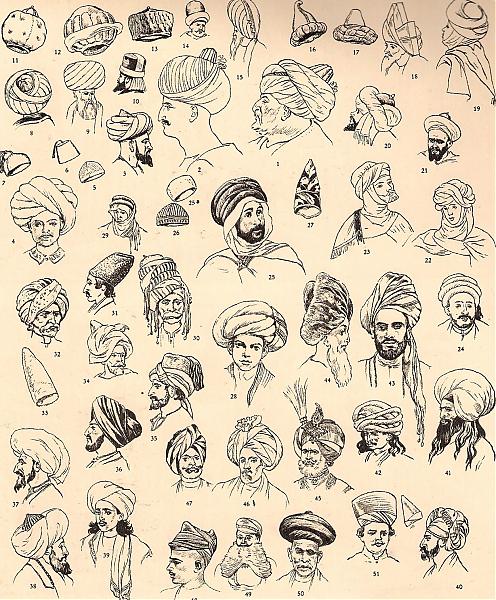 11
12
13
14
15
16
17
18
19
8
9
10
3
2
1
20
21
7
6
5
4
29
25a
26
25
27
23
22
32
31
30
28
44
43
24
33
34
35
36
37
47
46
45
42
41
38
39
49
50
51
40